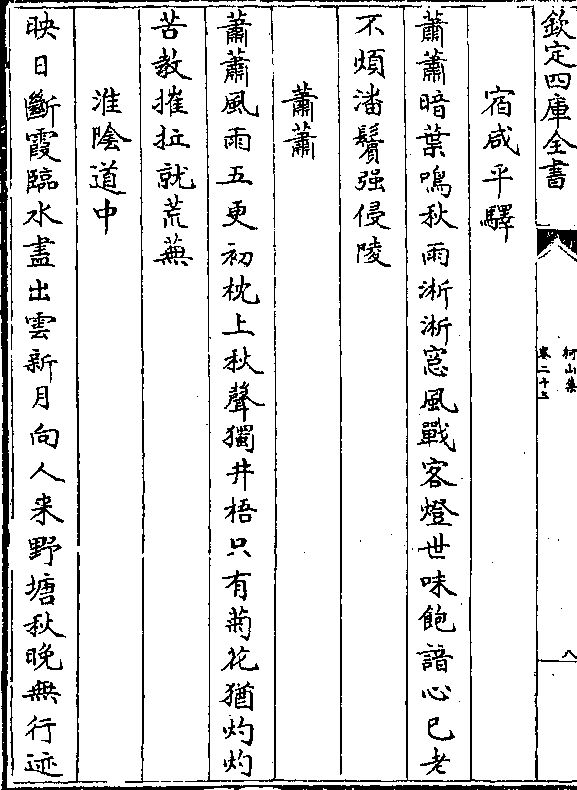 欽定四庫全書
柯山集
卷二十三
八
宿咸平驛
蕭蕭暗葉鳴秋雨淅淅窓風戰客燈世味飽諳心已老
不煩潘鬢强侵陵
蕭蕭
蕭蕭風雨五更初枕上秋聲獨井梧只有菊花猶灼灼
苦教摧拉就荒蕪
淮陰道中
映日斷霞臨水盡出雲新月向人来野塘秋晚無行迹